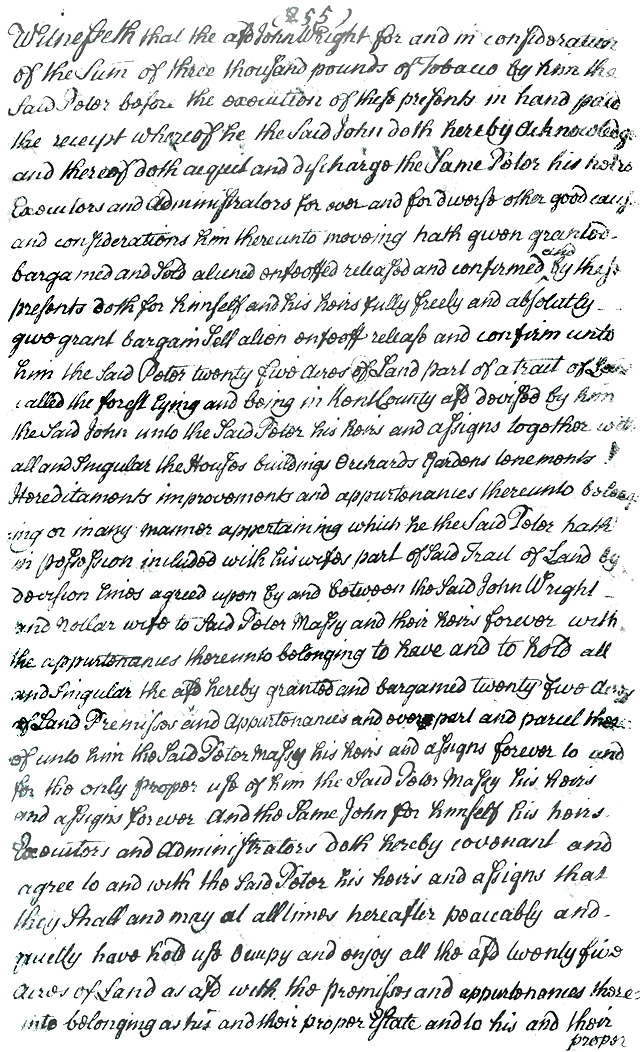 (255)
Witnesseth that the afd John Wright for and in consideration
of the Sum of three thousand pounds of Tobacco by him the
Said Peter before the execution of these presents in hand paid
the receipt whereof he the Said John doth hereby acknowledge
and thereof doth acquit and discharge the Same Peter his heirs
Executors and Administrators for ever and for diverse other good caus
and considerations him thereunto moveing hath given granted
bargained and Sold aliened enfeoffed released and confirmed and by these
presents doth for himself and his heirs fully freely and absolutly
give grant bargain Sell alien enfeoff release and confirm unto
him the Said Peter twenty five Acres of Land part of a tract of Lan
called the forest lying and being in Kent County afd devised by him
the Said John unto the Said Peter his heirs and assigns together with
all and Singular the Houses buildings Orchards Gardens tenements
Hereditaments improvements and appurtenances thereunto belong
ing or in any manner appertaining which he the Said Peter hath
in possession included with his wifes part of Said Tract of Land by
devision lines agreed upon by and between the Said John Wright
and Nollar wife to Said Peter Massy and their heirs forever with
the appurtenances thereunto belonging to have and to hold all
and Singular the afd hereby granted and bargained twenty five Acres
of Land Premisses and Appurtenances and every part and parcel there
of unto him the Said Peter Massy his heirs and assigns forever to and
for the only proper use of him the Said Peter Massy his heirs
and assigns forever And the Same John for himself his heirs
Executors and Administrators doth hereby covenant and
agree to and with the Said Peter his heirs and assigns that
they Shall and may at all times hereafter peaceably and
quietly have hold use Occupy and enjoy all the afd twenty five
Acres of Land as afd with the premisses and appurtenances there-
unto belonging as his and their proper Estate and to his and their
proper